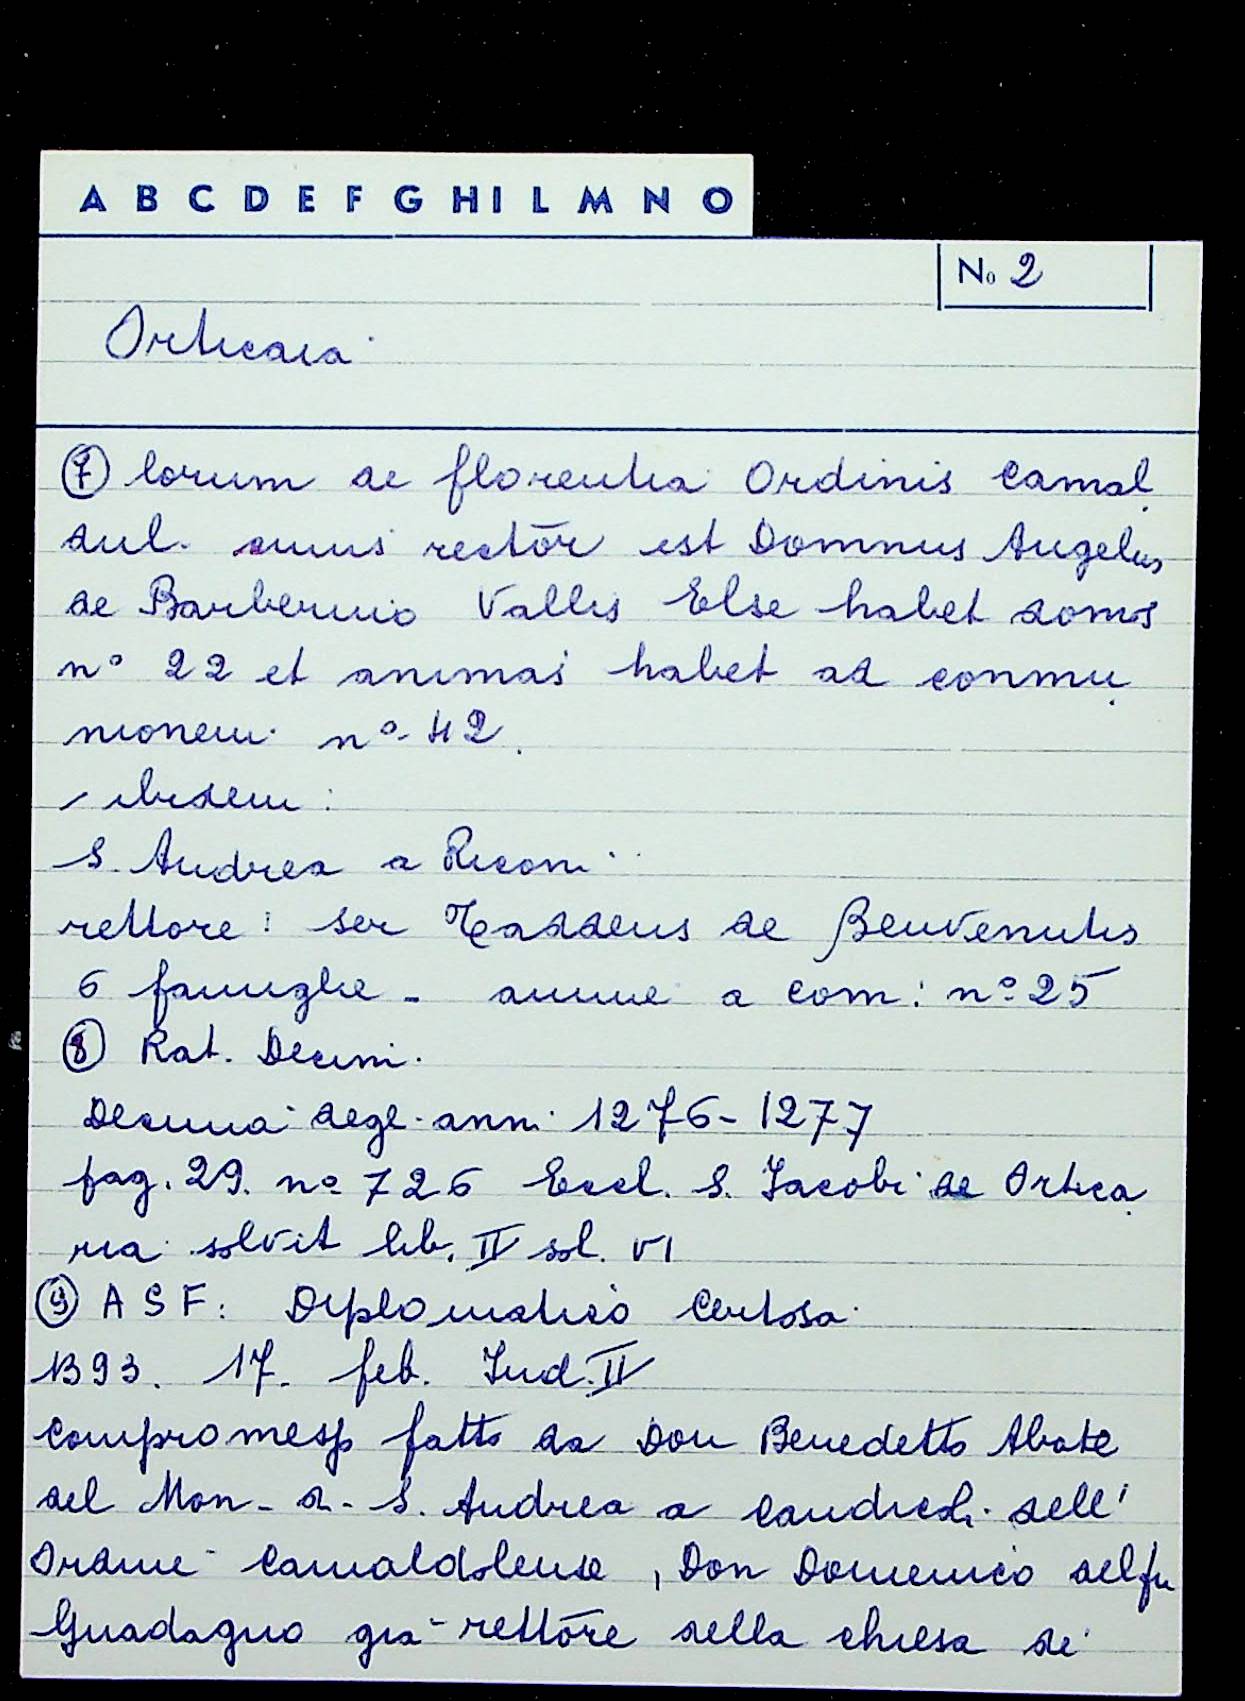 A B C D E F G H I L M N O
No 2
Orticaia
⑦ lorum de florentia Ordinis Camal
dul. cuius rectōr est Domnus Angelus
de Barberino Vallis Else habet domos
n° 22 et animas habet ad conmu
nionem n° 42.
- ibidem:
S. Andrea a Riconi
rettore: ser Taddeus de Benvenutis
6 famiglie - anime a com: n° 25
⑧ Rat. Decim.
Decima degl. anni 1276-1277
pag. 29. n° 726 Eccl. S. Jacobi de Ortica
ria solvit lib. II sol. VI
⑨ A S F: Diplomatico Certosa
1393. 17. feb. Ind. II
Compromesso fatto da Don Benedetto Abate
del Mon. d. S. Andrea a Candicoli dell'
Ordine Camaldolense, Don Domenico del fu
Guadagno già rettōre della chiesa di